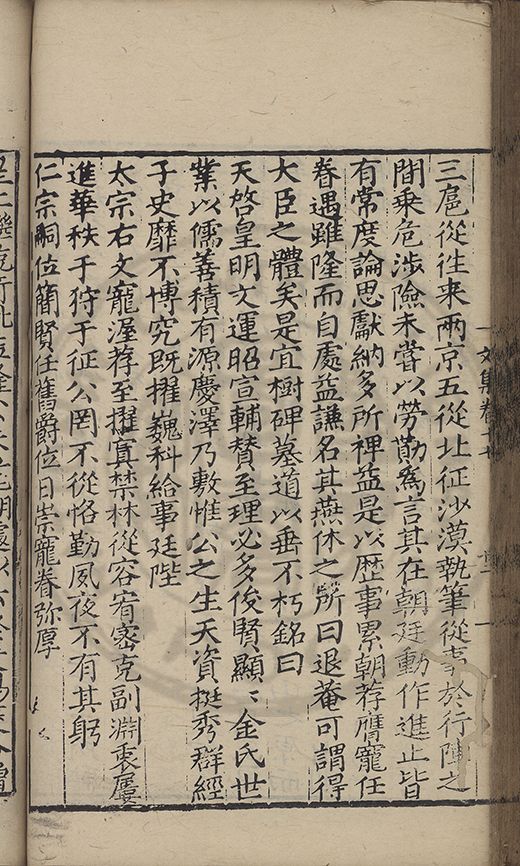 三扈從往来兩京五從北征沙漠執筆從事於行陣之
間乗危涉險未嘗以勞勩為言其在朝廷動作進止皆
有常度論思獻納多所裨益是以歴事累朝荐膺寵任
眷遇雖隆而自處益謙名其燕休之所曰退菴可謂得
大臣之體矣是宜樹碑墓道以垂不朽銘曰
天啓皇明文運昭宣輔賛至理必多俊賢顯〻金氏世
業以儒善積有源慶澤乃敷惟公之生天資挺秀群經
子史靡不博究既擢巍科給事廷陛
太宗右文寵渥荐至擢寘禁林從容宥密克副淵衷屢
進華秩于狩于征公罔不從恪勤夙夜不有其躬
仁宗嗣位簡賢任舊爵位日崇寵眷弥厚
文集卷十